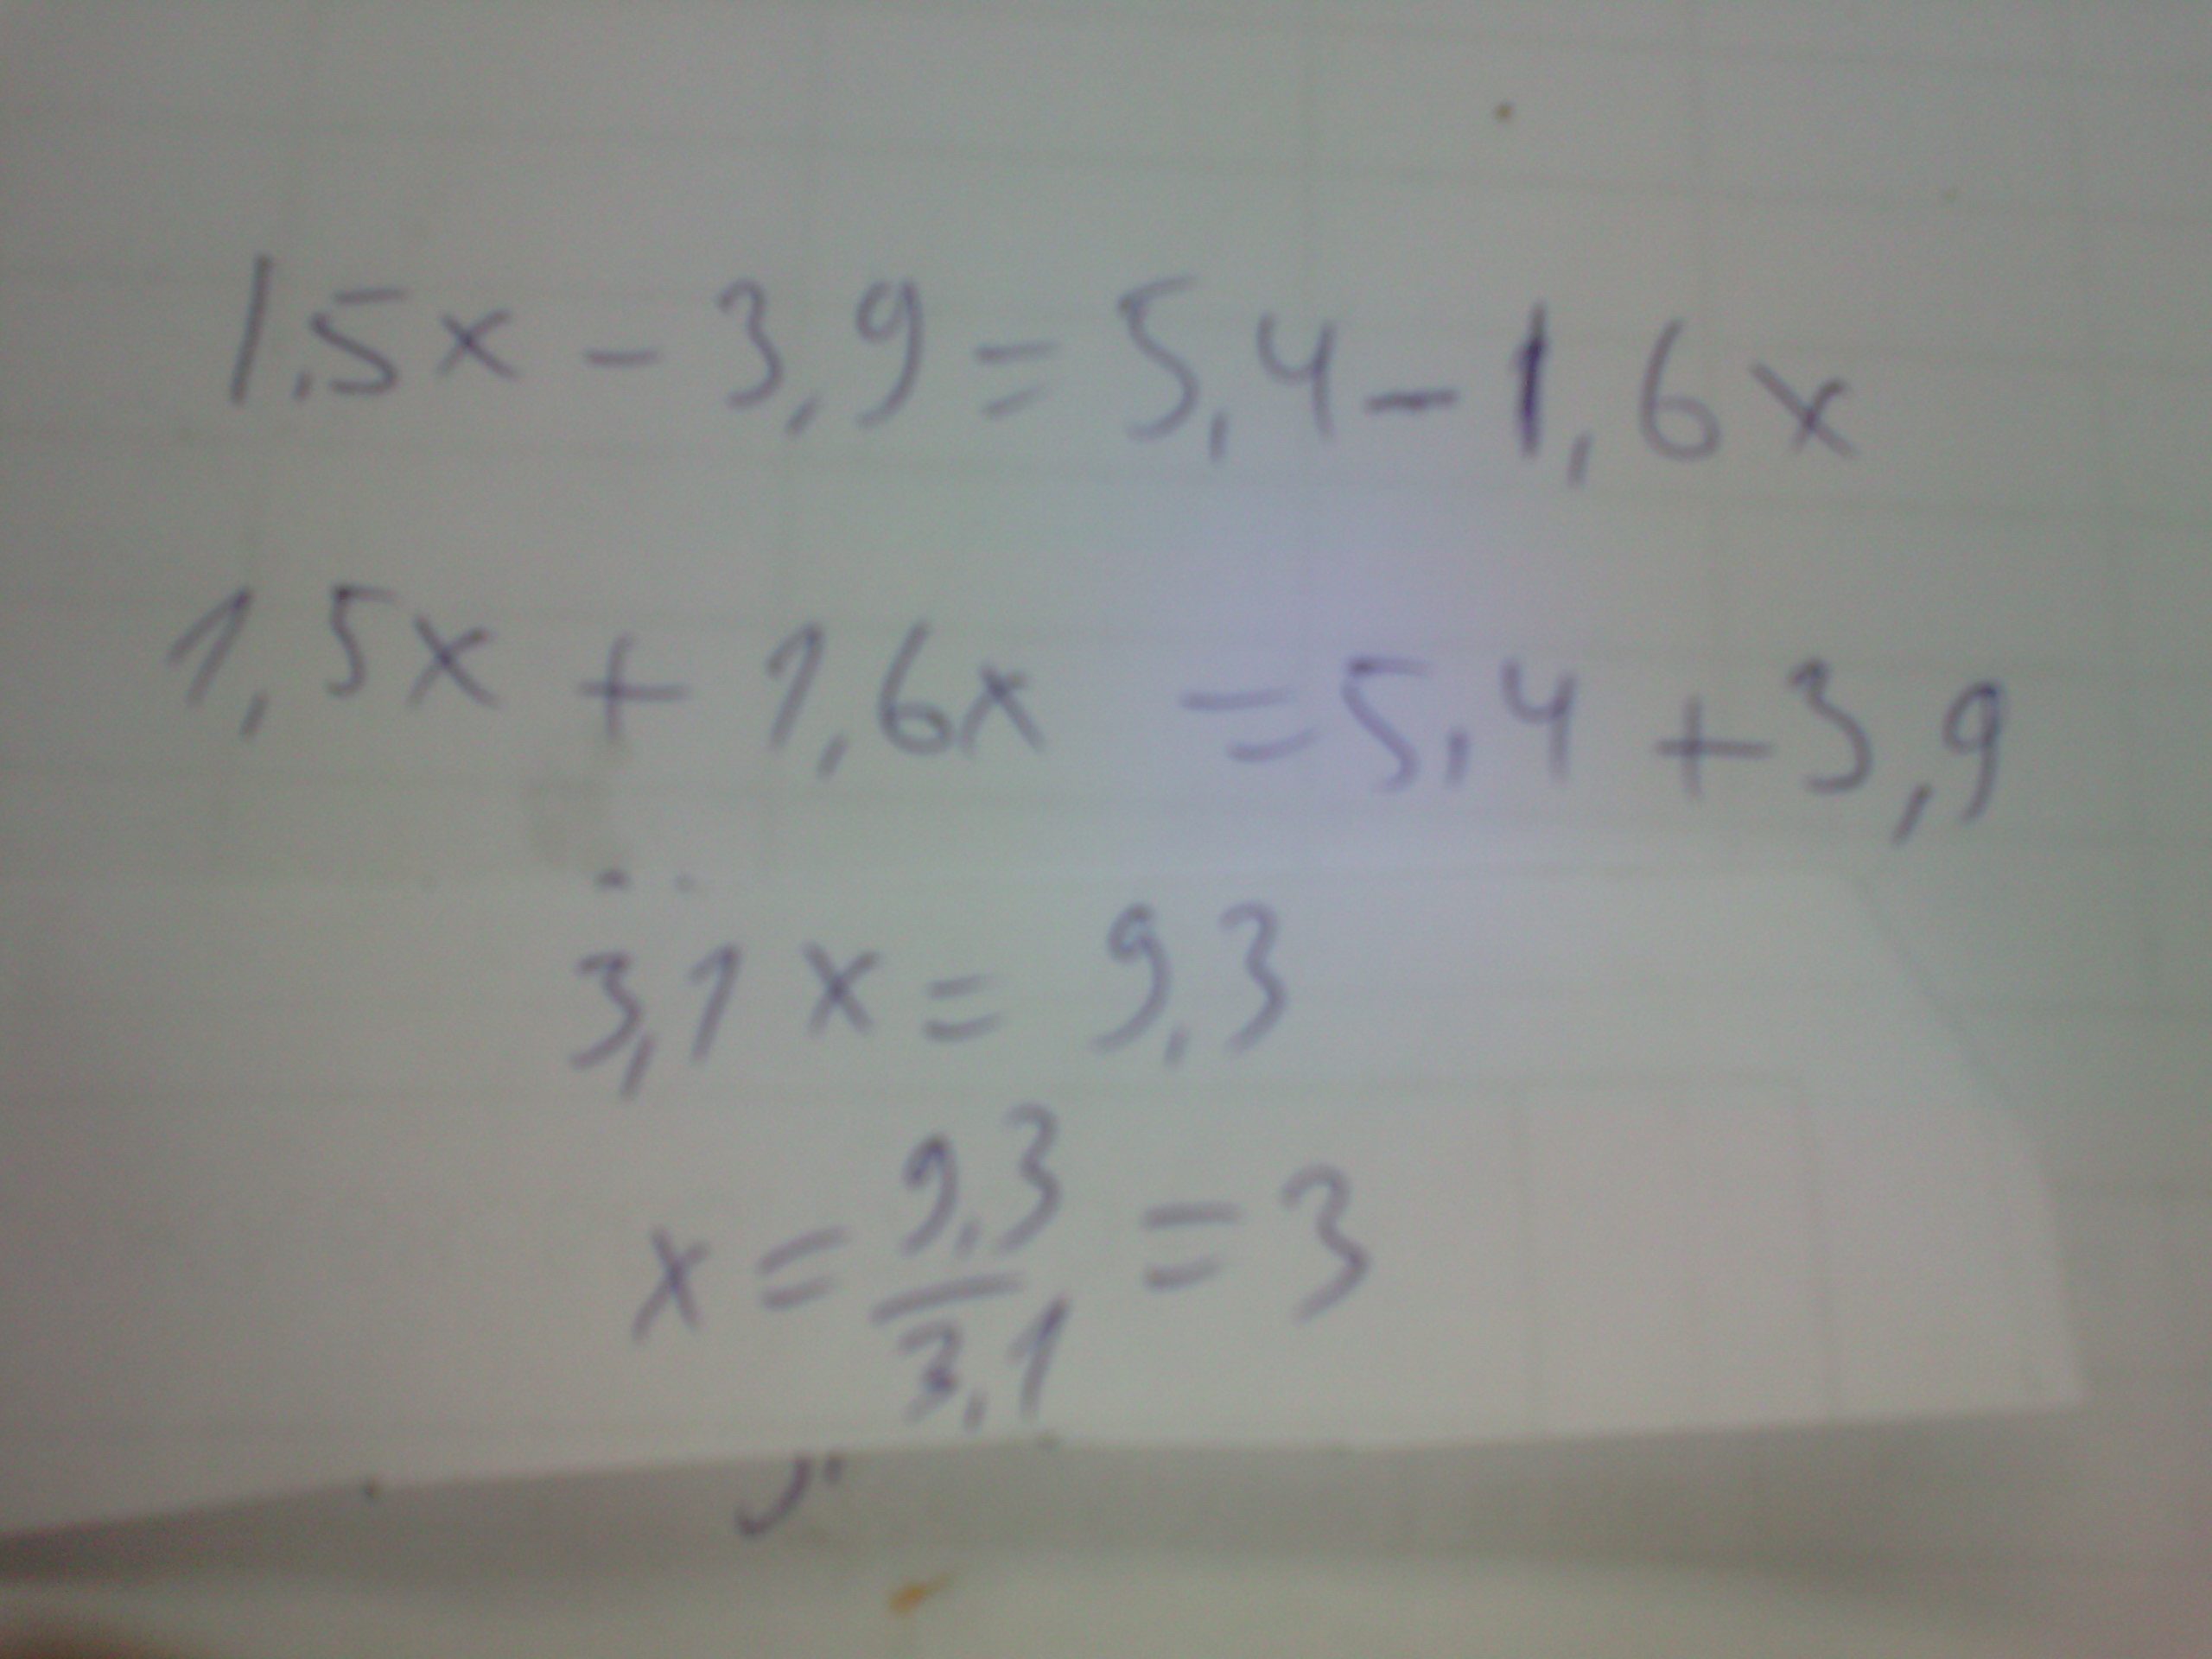 1,5x - 3,9 = 5,4 - 1,6x
1,5x + 1,6x = 5,4 + 3,9
3,1x = 9,3
x = 9,3/3,1 = 3